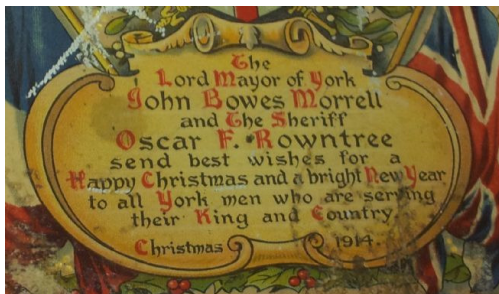 The
Lord Mayor of York
John Bowes Morrell
and The Sheriff
Oscar F. Rowntree
send best wishes for a
Happy Christmas and a bright New Year
to all York men who are serving
their King and Country
Christmas 1914.